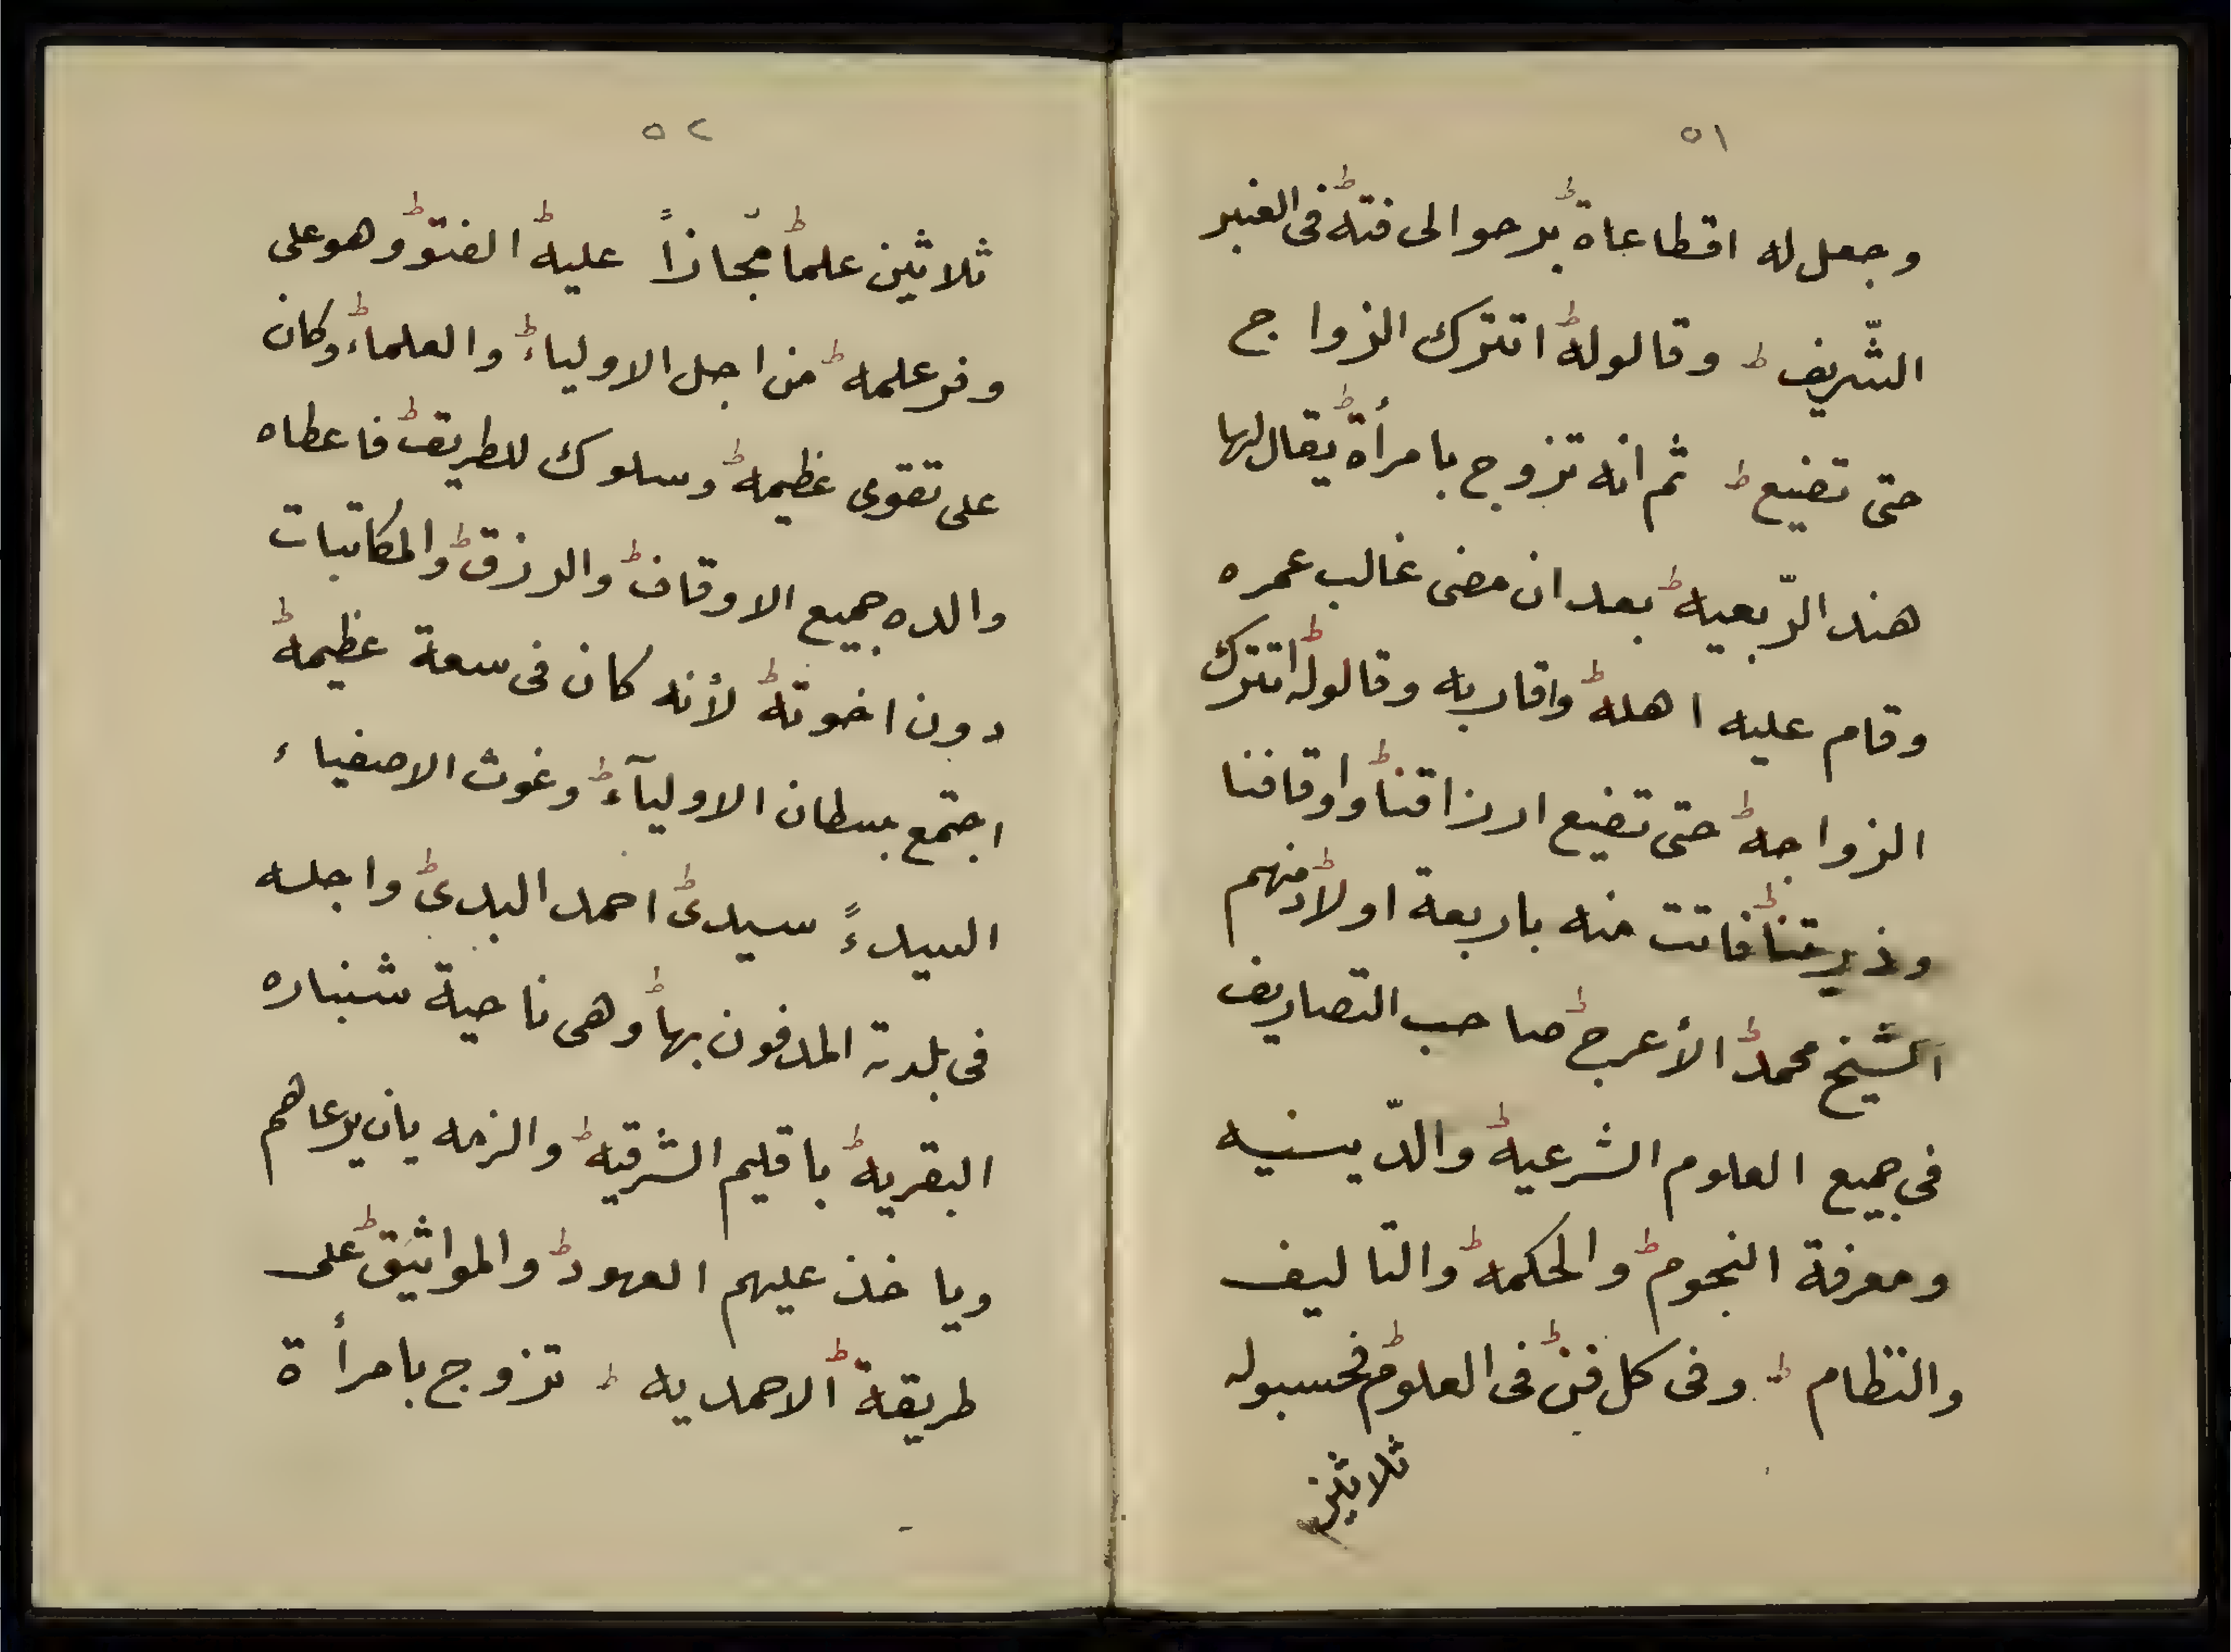 ٥١
وجعل له اقطاعاة برحوالى فتة فى القبر
الشّريف ط وقالوله اتترك الزواج
حتى تضيع ط ثم انه تزوج بامرأة يقال لها
هند الرّبعيه بعد ان مضى غالب عمره
وقام عليه اهله واقاربه وقالوله اتترك
الزواجه حتى تضيع ارزاقنا واوقافنا
وذريتنا فاتت منه باربعة اولاد منهم
الشيخ محمد الأعرج صاحب التصاريف
في جميع العلوم الشرعيه والدّينيه
ومعرفة النجوم والحكمه والتاليف
والنظام ط وفى كل فن فى العلوم فحسبوله
ثلاثين
٥٢
ثلاثين علما مجازاً عليه الفتو وهو على
وفر علمه من اجل الاولياء والعلماء وكان
على تقوى عظيمه وسلوك للطريق فاعطاه
والده جميع الاوقاف والرزق والمكاتبات
دون اخوته لأنه كان فى سعة عظيمه
اجتمع بسطان الاوليآء وغوث الاصفياء
السيدءً سيدى احمد البدى واجله
فى بلدته المدفون بها وهى ناحية شنباره
البقريه باقليم الشرقيه والزمه بان يرعاهم
وياخذ عليهم العهود والمواثيق على
طريقة الاحمديه ط تزوج بامرأة